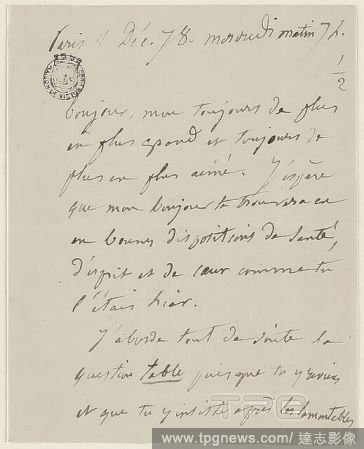 Paris 11 Déc. 78. mercredi matin 7h. 1/2
bonjour, mon toujours de plus
en plus grand et toujours de
plus en plus aimé. J'espère
que mon bonjour te trouvera en
en bonnes dispositions de santé,
d'esprit et de cœur comme tu
l'étais hier.
J'aborde tout de suite la
question table puisque tu y reviens
et que tu y insiste après les lamentables
TPG
www.tpgnews.com/ 達志影像